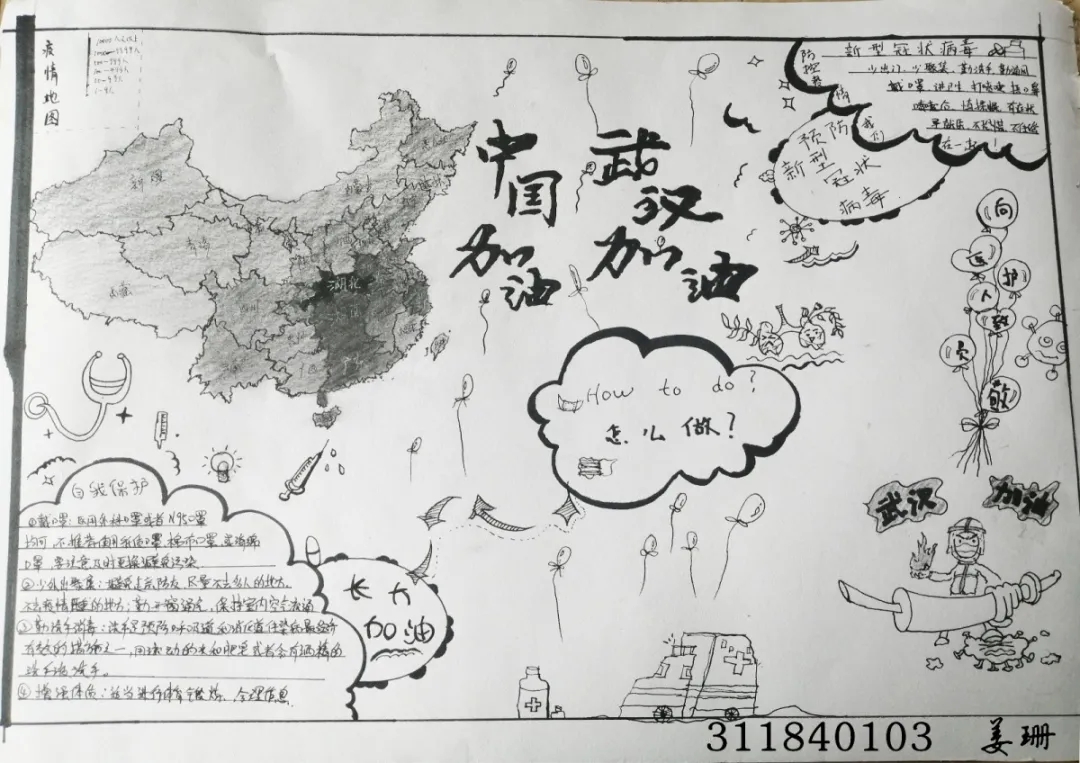 疫情地图
新疆
青海
西藏
湖北
中国
加油
武汉
加油
防控疫情
新型冠状病毒
少出门、少聚集、勤洗手、勤通风
戴口罩、讲卫生、打喷嚏、捂口鼻
在一起!
我们
预防
新型冠状
病毒
向
医护
人
员
致
敬
How to do?
怎么做?
自我保护
①戴口罩:医用外科口罩或者N95口罩
均可,不推荐使用纸口罩、棉布口罩、海绵
口罩,要注意及时更换避免污染
②少外出聚集:避免走亲防友,尽量不去多人的地方。
③勤洗手消毒:洗手是预防呼吸道和消化道传染病最经济
有效的措施之一,用流动的水和肥皂或者含有酒精的
洗手液洗手。
④增强体质:适当进行体育锻炼、合理作息
长大
加油
武汉
加油
311840103
姜珊